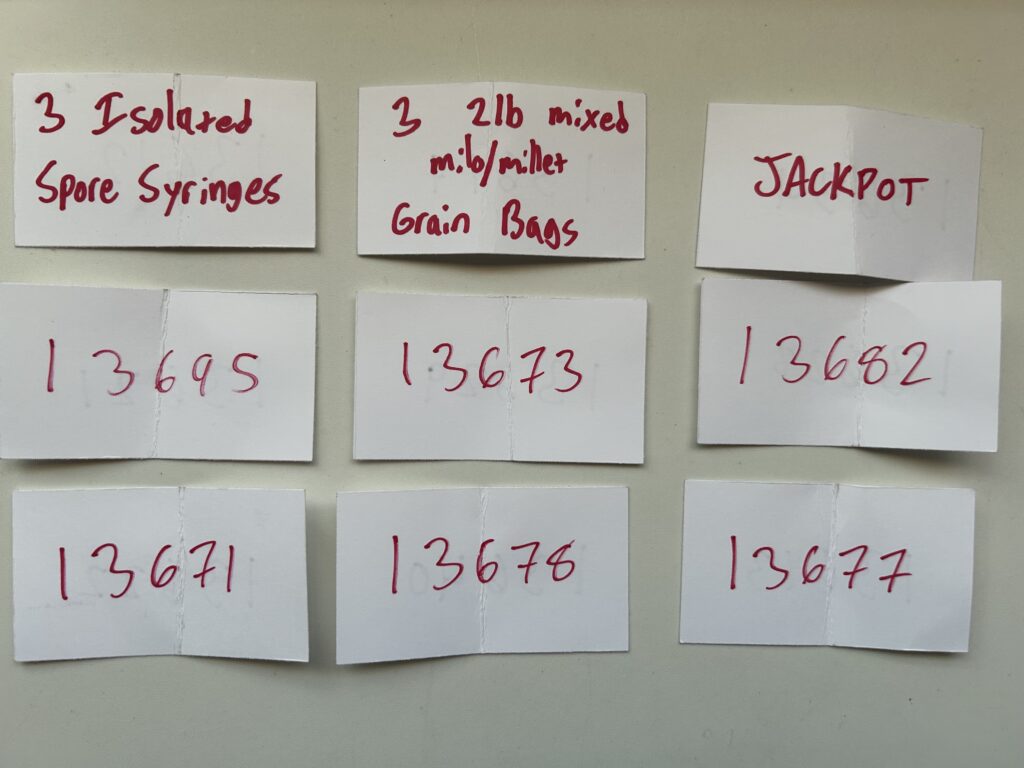 3 Isolated
Spore Syringes
3 2lb mixed
milo/millet
Grain Bags
JACKPOT
13695
13673
13682
13671
13678
13677